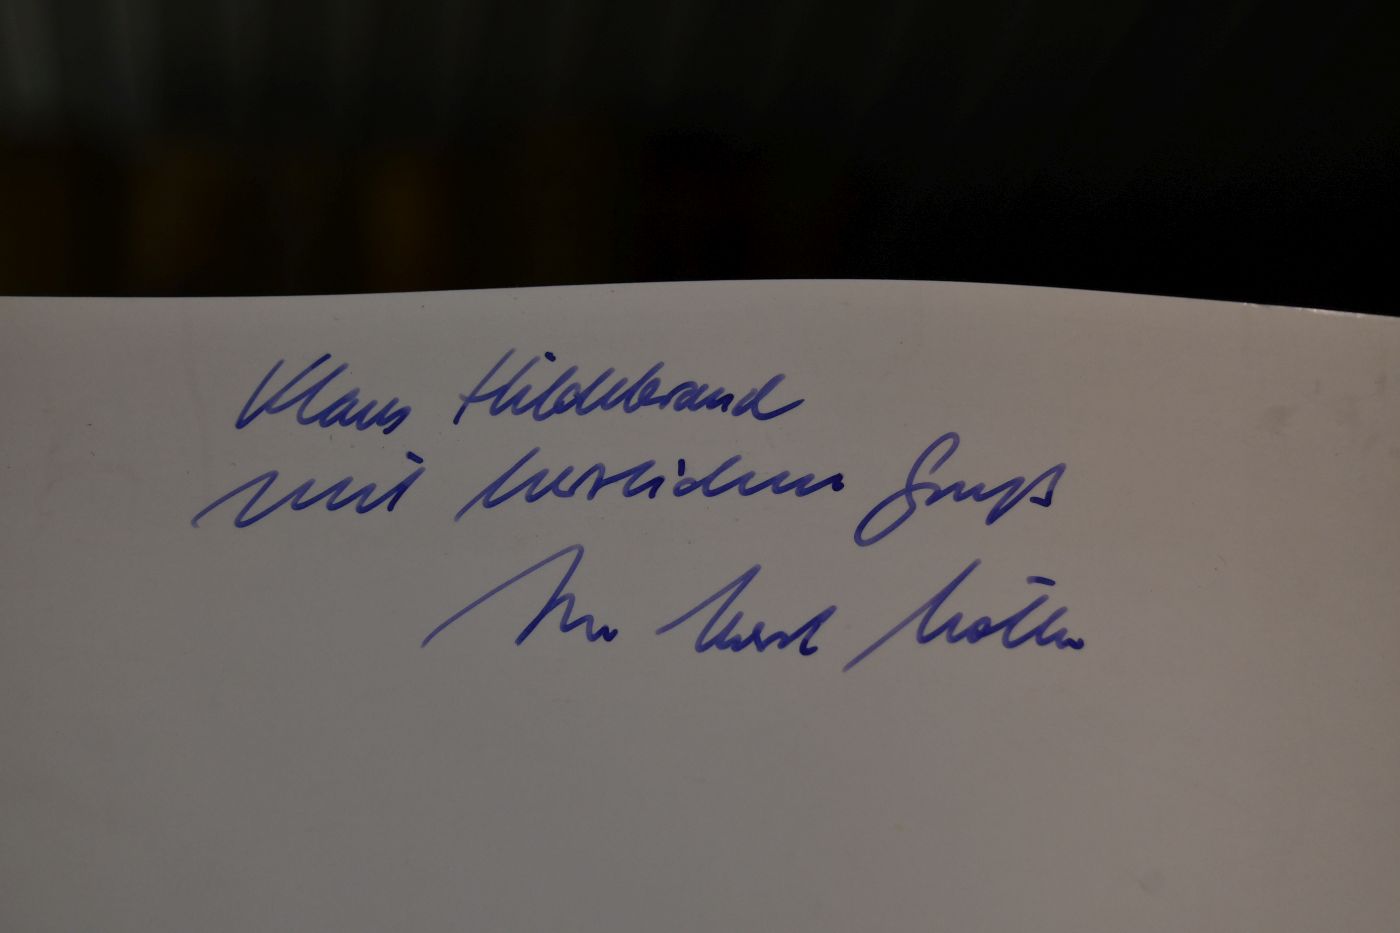 Klaus Hildebrand
mit herzlichem Gruß
Ihr Horst Möller